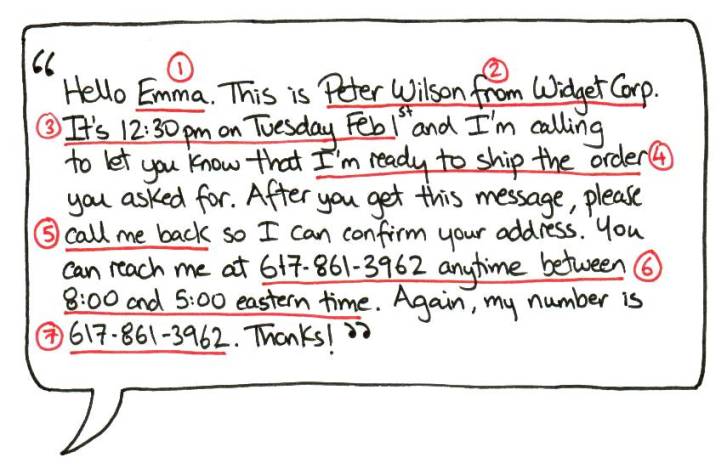 ① ②
“ Hello Emma. This is Peter Wilson from Widget Corp.
③ It's 12:30pm on Tuesday Feb 1st and I'm calling
to let you know that I'm ready to ship the order ④
you asked for. After you get this message, please
⑤ call me back so I can confirm your address. You
can reach me at 617-861-3962 anytime between ⑥
8:00 and 5:00 eastern time. Again, my number is
⑦ 617-861-3962. Thanks! ”